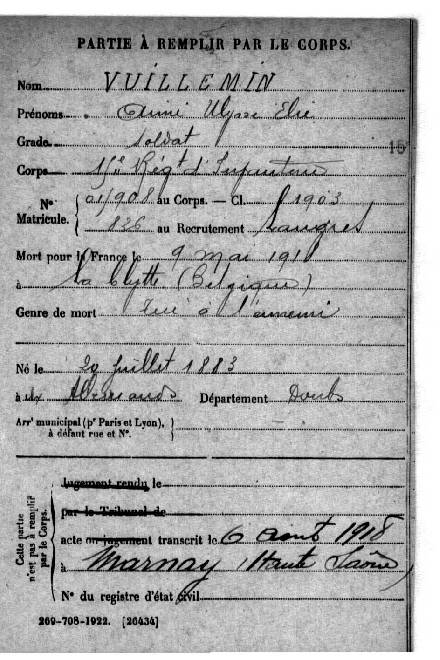 PARTIE À REMPLIR PAR LE CORPS.
Nom VUILLEMIN
Prénoms Aimé Ulysse Elie
Grade soldat
Corps Régt d'Infanterie
N° Matricule. { 01908 au Corps. — Cl. 1903
836 au Recrutement Langres
Mort pour la France le 9 Mai 1918
à La Clytte (Belgique)
Genre de mort Tué à l'ennemi
Né le 29 Juillet 1883
à Département Doubs
Arr^t municipal (p^r Paris et Lyon), à défaut rue et N°. }
Cette partie n'est pas à remplir par le Corps.
Jugement rendu le
par le Tribunal de
acte ou jugement transcrit le 6 août 1918
à Marnay (Haute Saône)
N° du registre d'état civil
269-708-1922. [26434]